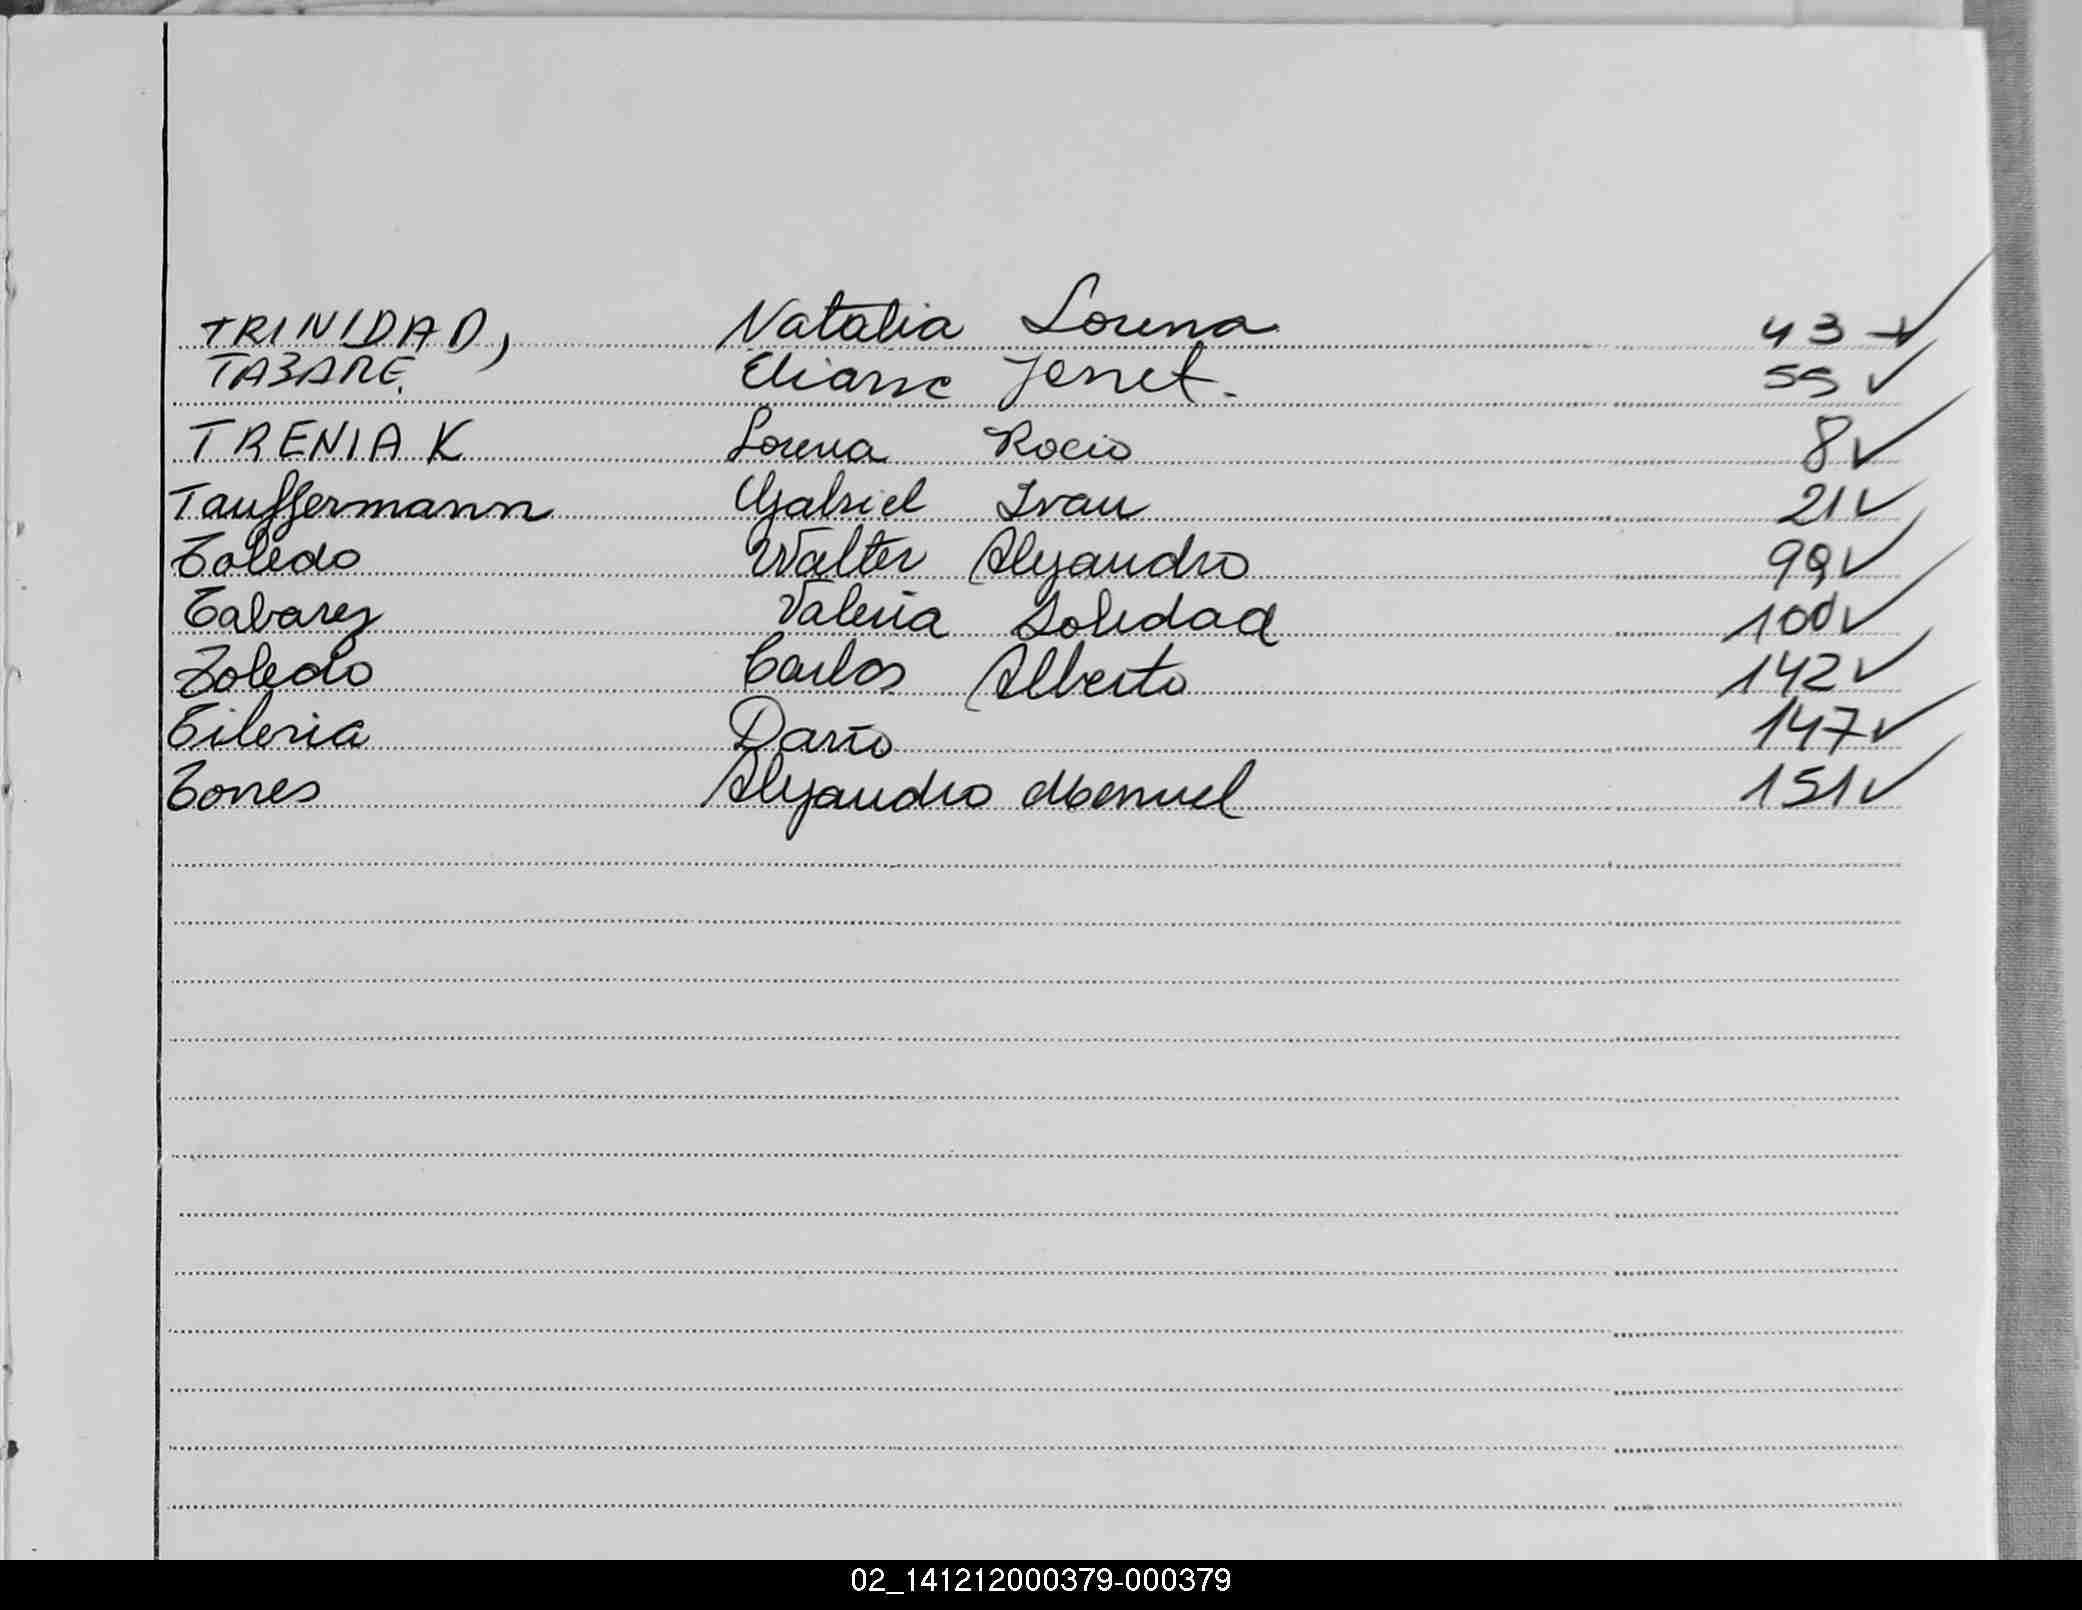 TRINIDAD, Natalia Lorena 43
TABARE. Eliane Jenet. 55
TRENIAK Lorena Rocio 8
Tauffermann Gabriel Ivan 21
Toledo Walter Alejandro 99
Tabarez Valeria Soledad 100
Toledo Carlos Alberto 142
Tileria Darío 147
Torres Alejandro Manuel 151
02_141212000379-000379